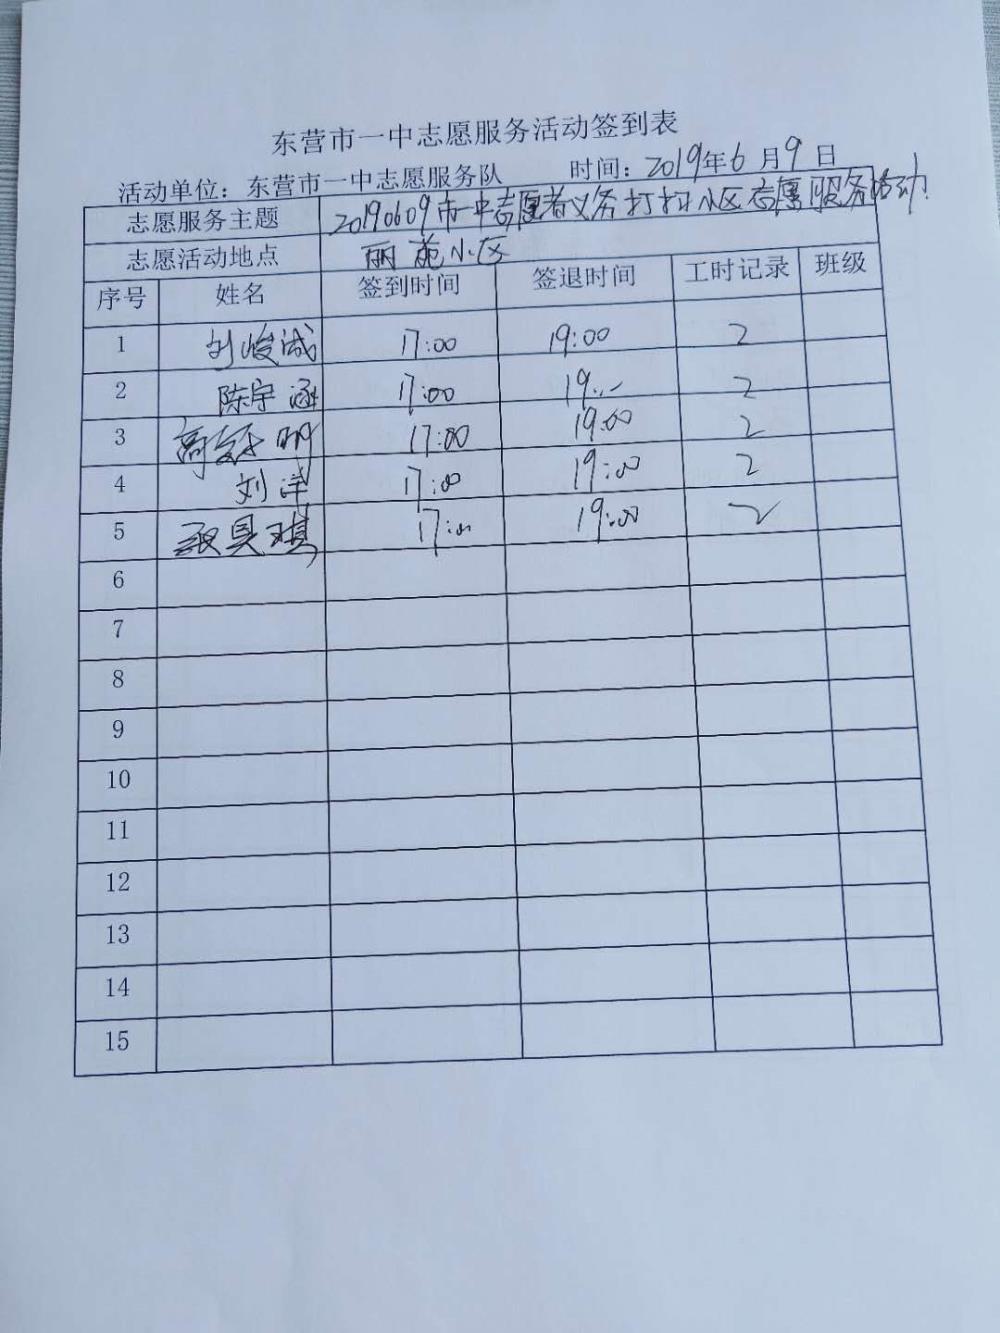 东营市一中志愿服务活动签到表
活动单位：东营市一中志愿服务队 时间：2019年6月9日
志愿服务主题 20190609市一中志愿者义务打扫小区志愿服务活动
志愿活动地点 丽苑小区
序号 姓名 签到时间 签退时间 工时记录 班级
1 刘峻诚 17:00 19:00 2
2 陈宇涵 17:00 19:00 2
3 高 明 17:00 19:00 2
4 刘洋 17:00 19:00 2
5 昊琪 17:00 19:00 2
6
7
8
9
10
11
12
13
14
15